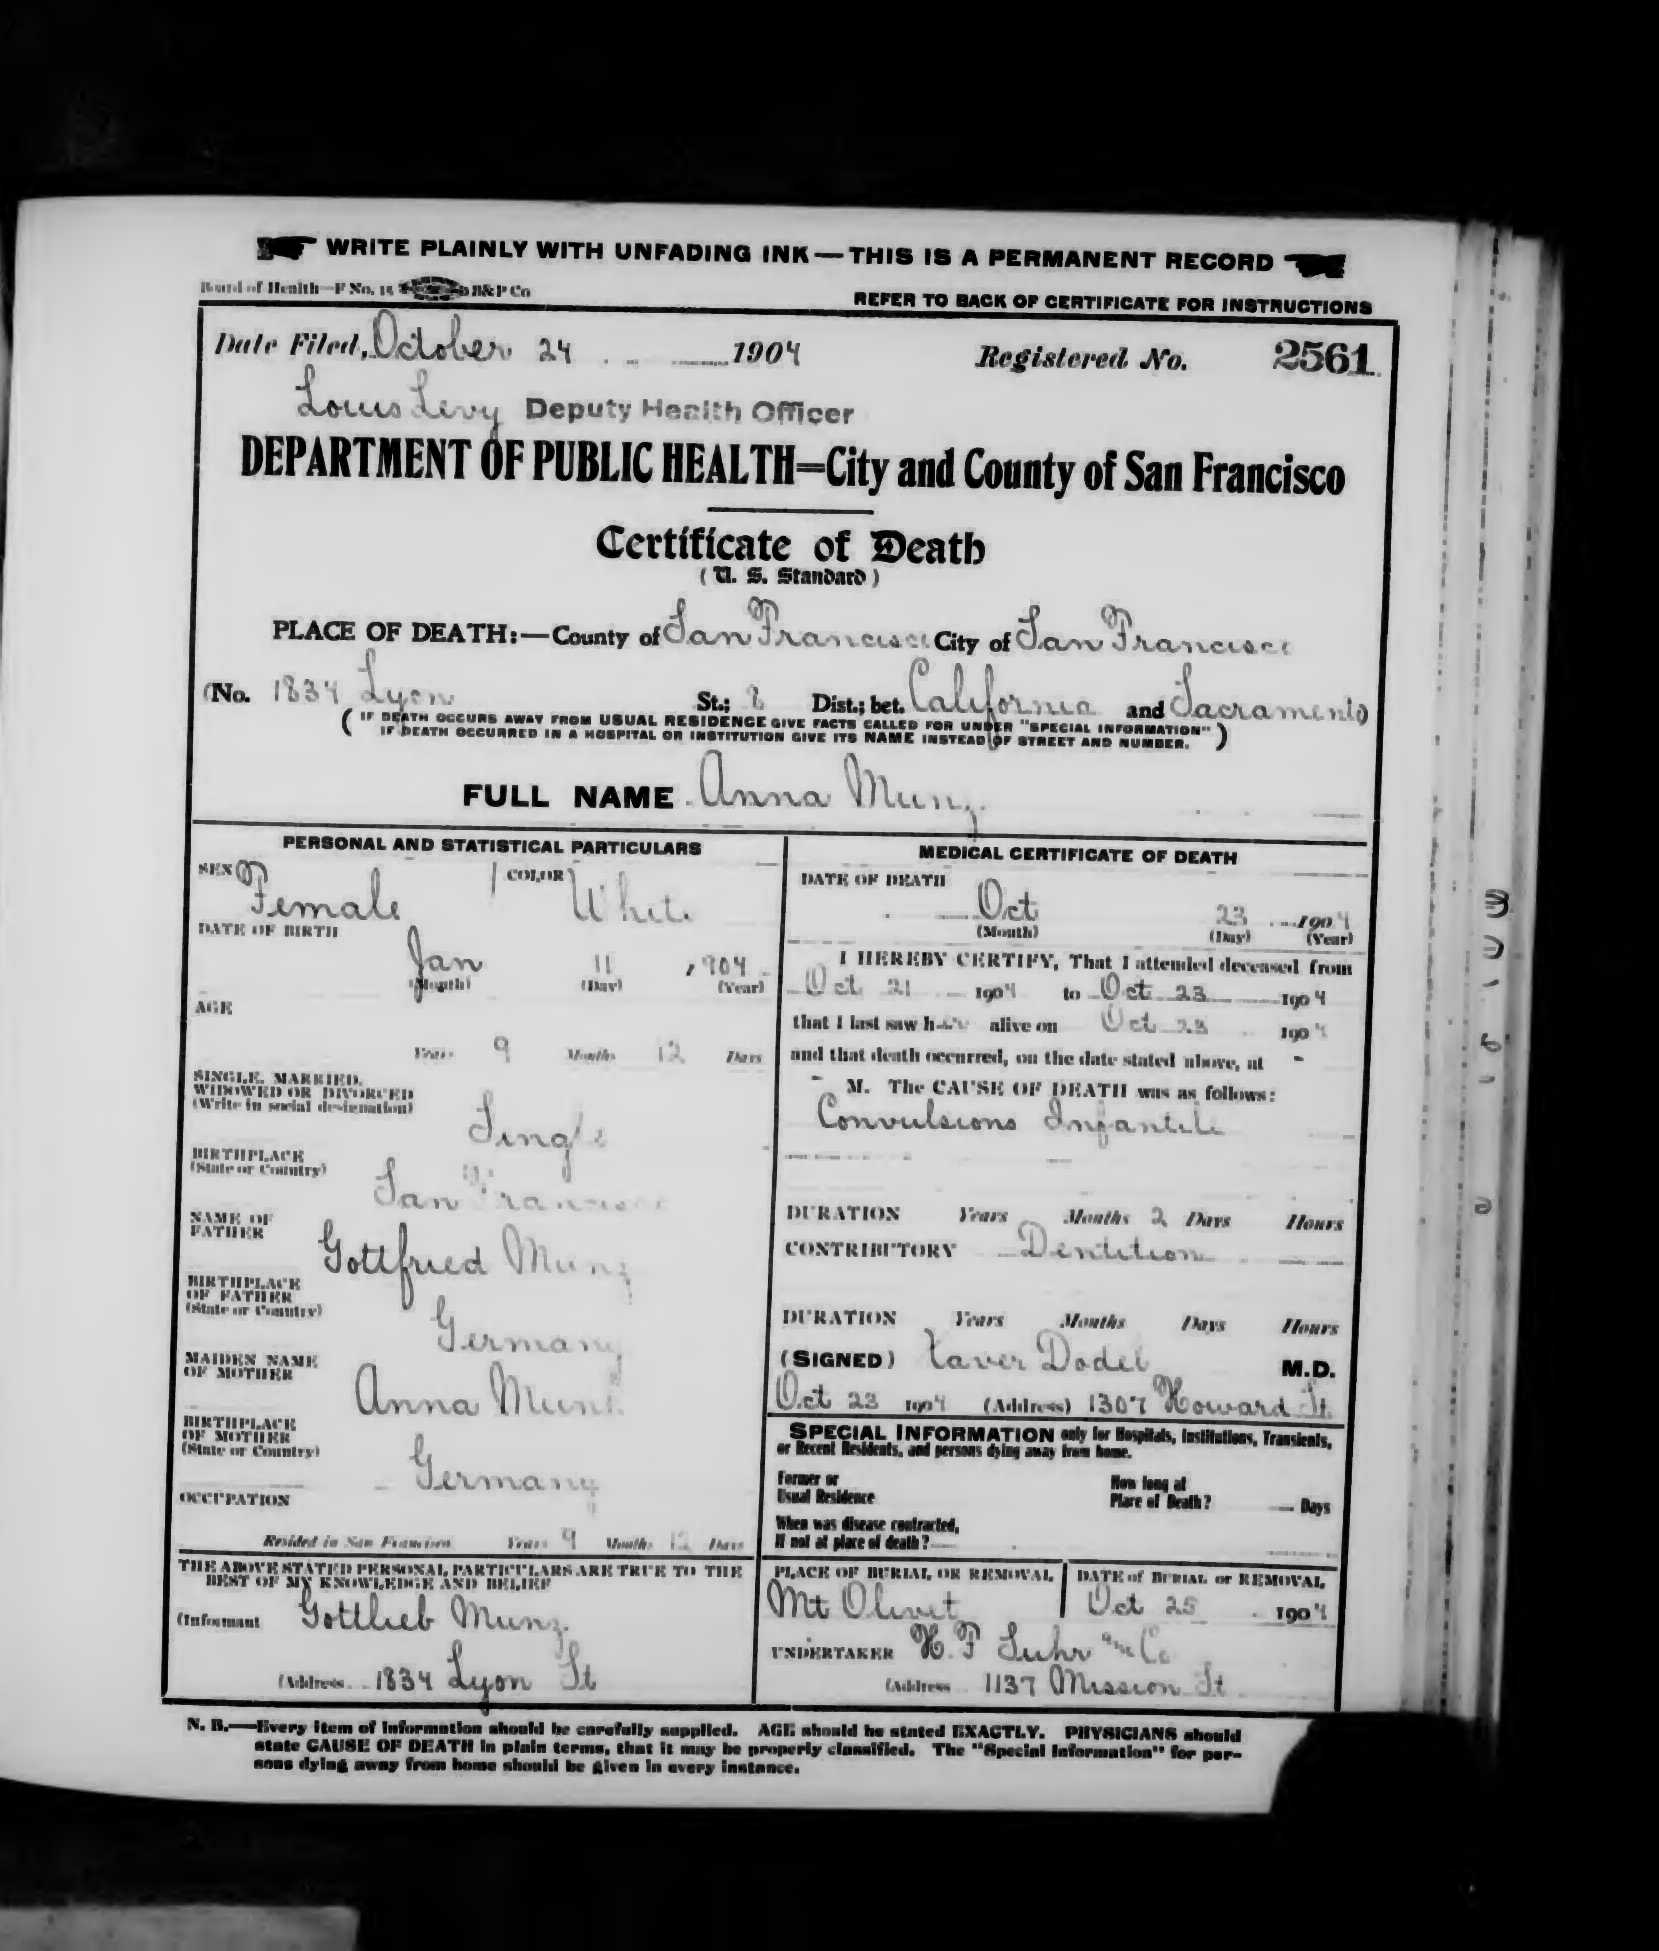 WRITE PLAINLY WITH UNFADING INK — THIS IS A PERMANENT RECORD
Board of Health—F No. 15 B&P Co
REFER TO BACK OF CERTIFICATE FOR INSTRUCTIONS
Date Filed, October 24 1904 Registered No. 2561
Louis Levy Deputy Health Officer
DEPARTMENT OF PUBLIC HEALTH=City and County of San Francisco
Certificate of Death
(U. S. Standard)
PLACE OF DEATH:—County of San Francisco City of San Francisco
(No. 1834 Lyon St.; 8 Dist.; bet. California and Sacramento)
(IF DEATH OCCURS AWAY FROM USUAL RESIDENCE GIVE FACTS CALLED FOR UNDER "SPECIAL INFORMATION"
IF DEATH OCCURRED IN A HOSPITAL OR INSTITUTION GIVE ITS NAME INSTEAD OF STREET AND NUMBER.)
FULL NAME Anna Munz
PERSONAL AND STATISTICAL PARTICULARS
SEX Female COLOR White
DATE OF BIRTH
Jan 11 1904
(Month) (Day) (Year)
AGE
Years 9 Months 12 Days
SINGLE, MARRIED,
WIDOWED OR DIVORCED
(Write in social designation)
Single
BIRTHPLACE
(State or Country)
San Francisco
NAME OF
FATHER
Gottfried Munz
BIRTHPLACE
OF FATHER
(State or Country)
Germany
MAIDEN NAME
OF MOTHER
Anna
BIRTHPLACE
OF MOTHER
(State or Country)
Germany
OCCUPATION
Resided in San Francisco Years 9 Months 12 Days
THE ABOVE STATED PERSONAL PARTICULARS ARE TRUE TO THE
BEST OF MY KNOWLEDGE AND BELIEF
(Informant Gottlieb Munz
(Address 1834 Lyon St
MEDICAL CERTIFICATE OF DEATH
DATE OF DEATH
Oct 23 1904
(Month) (Day) (Year)
I HEREBY CERTIFY, That I attended deceased from
Oct 21 1904 to Oct 23 1904
that I last saw her alive on Oct 23 1904
and that death occurred, on the date stated above, at -
- M. The CAUSE OF DEATH was as follows:
Convulsions Infantile
DURATION Years Months 2 Days Hours
CONTRIBUTORY Dentition
DURATION Years Months Days Hours
(SIGNED) Xaver Dodel M.D.
Oct 23 1904 (Address) 1307 Howard St
SPECIAL INFORMATION only for Hospitals, Institutions, Transients,
or Recent Residents, and persons dying away from home.
Former or
Usual Residence
How long at
Place of Death? Days
When was disease contracted,
If not at place of death?
PLACE OF BURIAL OR REMOVAL DATE of BURIAL or REMOVAL
Mt Olivet Oct 25 1904
UNDERTAKER H. F Suhr and Co
(Address 1137 Mission St
N. B.—Every item of information should be carefully supplied. AGE should be stated EXACTLY. PHYSICIANS should
state CAUSE OF DEATH in plain terms, that it may be properly classified. The "Special Information" for per-
sons dying away from home should be given in every instance.